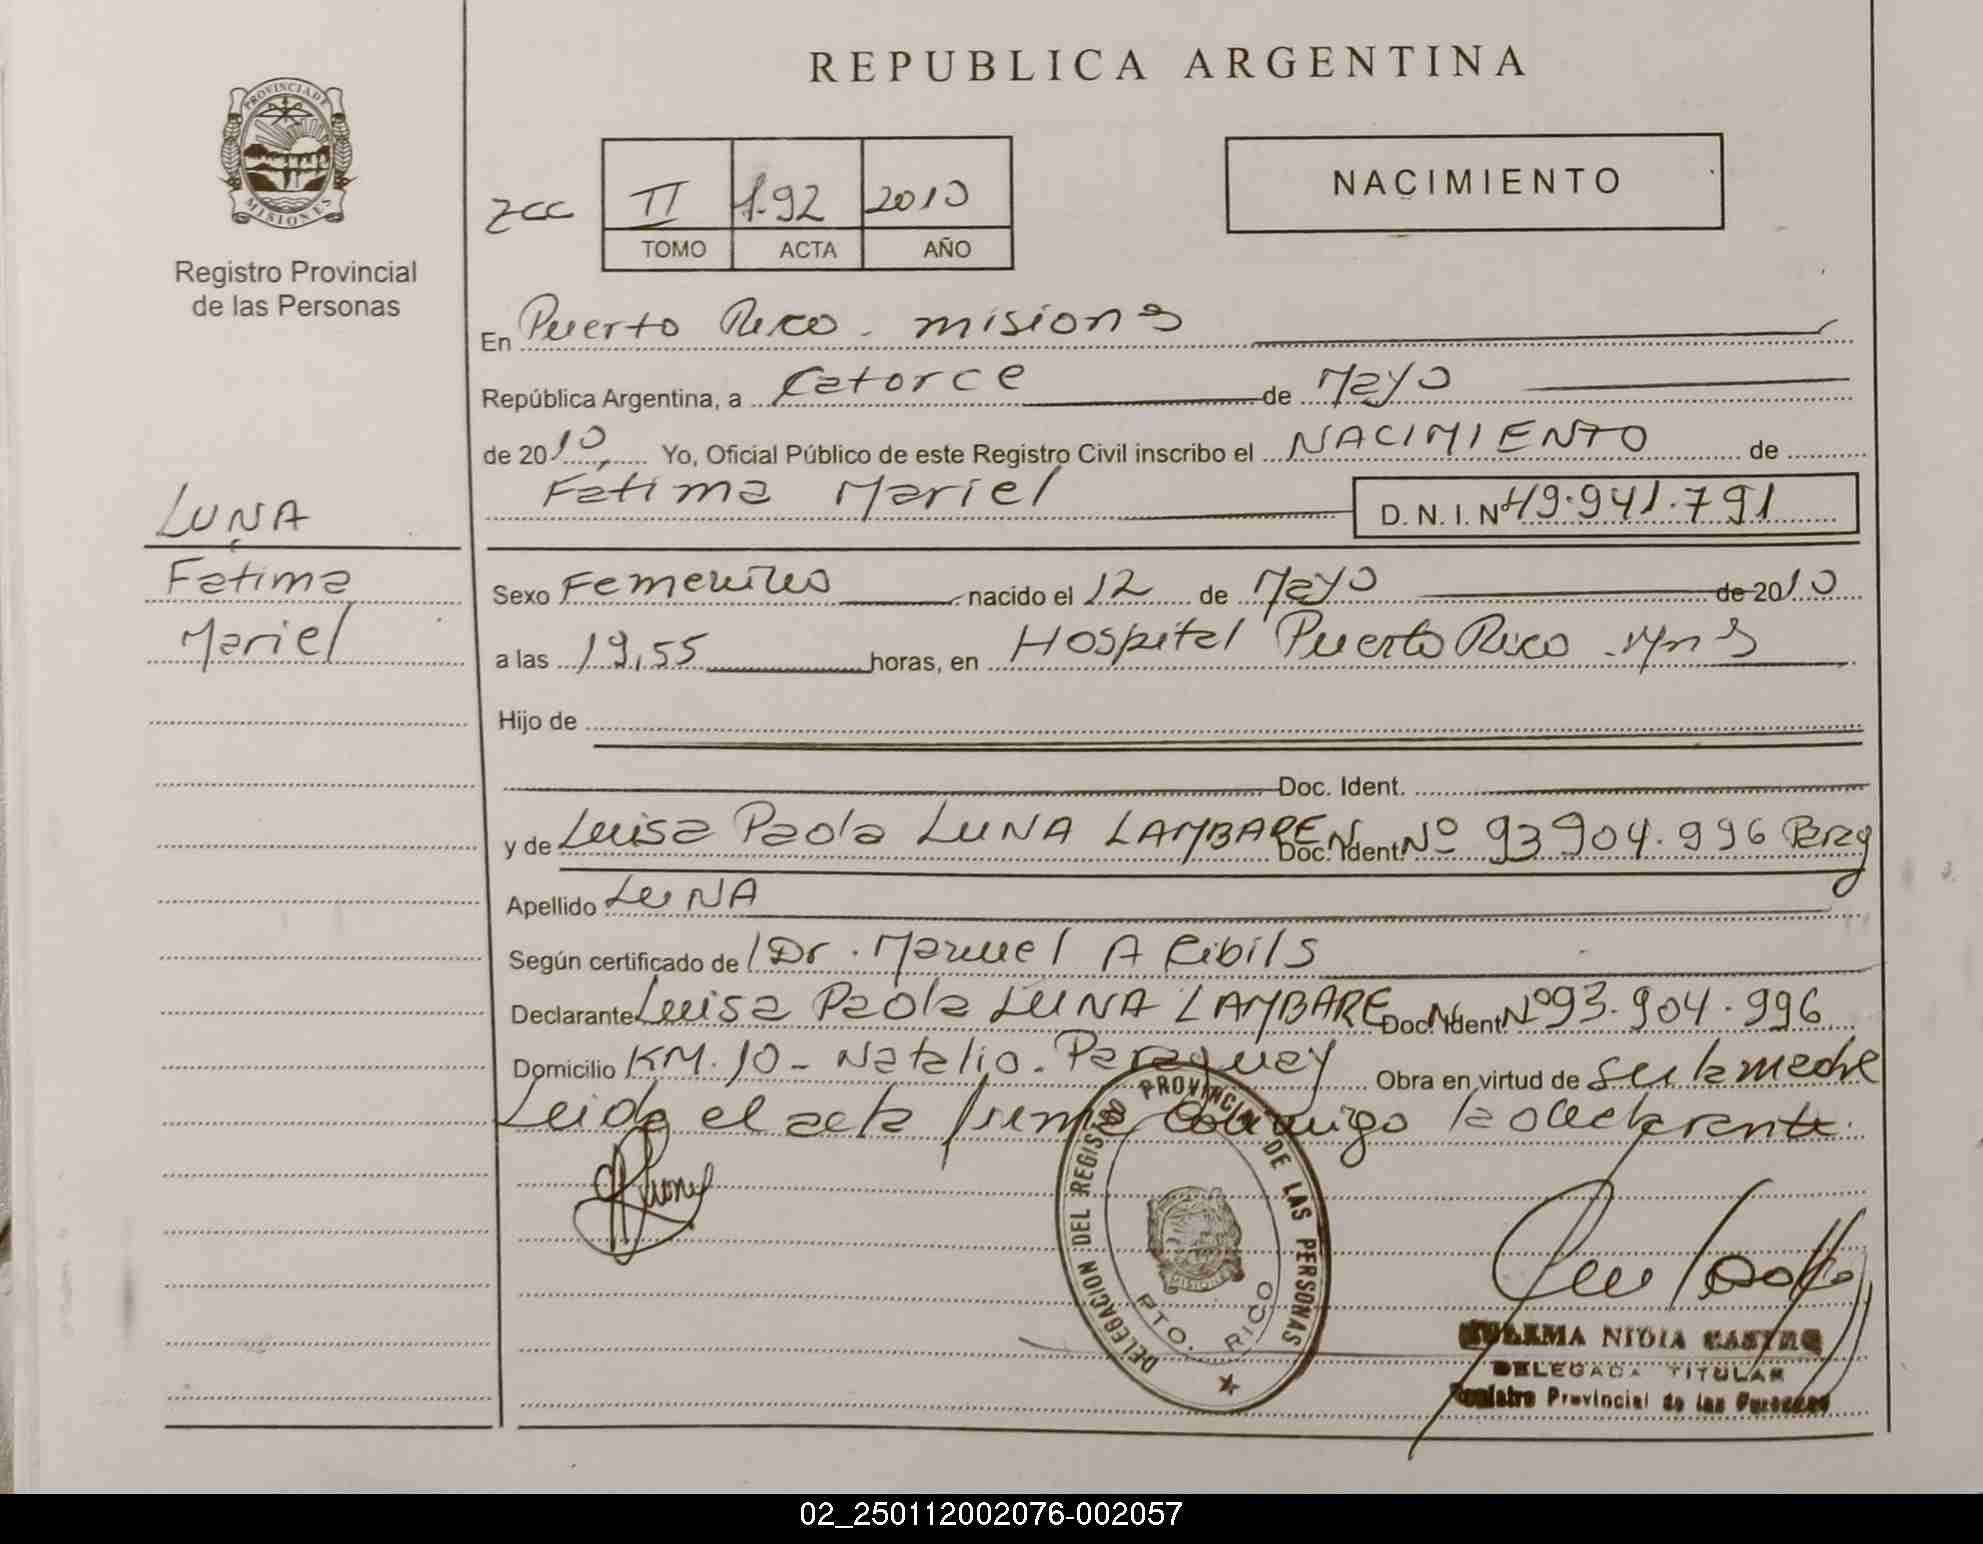 REPUBLICA ARGENTINA
PROVINCIA DE MISIONES
Registro Provincial
de las Personas
II 192 2010
TOMO ACTA AÑO
NACIMIENTO
En Puerto Rico - misiones
República Argentina, a catorce de Mayo
de 2010, Yo, Oficial Público de este Registro Civil inscribo el NACIMIENTO de
Fatima Mariel D. N. I. Nº 49.941.791
LUNA
Fatima
Mariel
Sexo Femenino nacido el 12 de Mayo de 2010
a las 19,55 horas, en Hospital Puerto Rico - Mnes
Hijo de
Doc. Ident.
y de Luisa Paola LUNA LAMBARE Doc. Ident. DNI Nº 93904.996 Parag
Apellido LUNA
Según certificado de Dr. Manuel A Ribils
Declarante Luisa Paola LUNA LAMBARE Doc. Ident. DNI Nº 93.904.996
Domicilio KM. 10 - Natalio - Paraguay Obra en virtud de ser la madre
Leida el acta firma conmigo la declarante.
DELEGACION DEL REGISTRO PROVINCIAL DE LAS PERSONAS
MISIONES
PTO. RICO
NIDIA CASTRO
DELEGADA TITULAR
Registro Provincial de las Personas
02_250112002076-002057